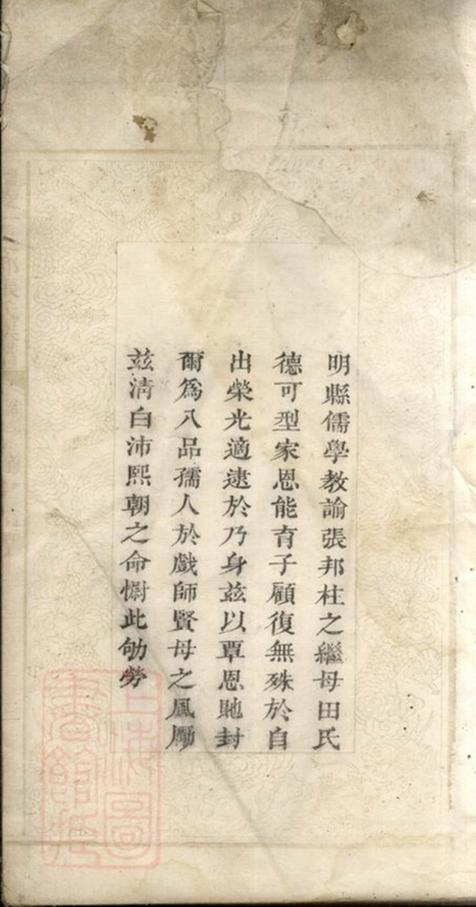 明縣儒學教諭張邦柱之繼母田氏
德可型家恩能育子顧復無殊於自
出榮光適逮於乃身兹以覃恩貤封
爾爲八品孺人於戲師賢母之風厲
兹淸白沛熙朝之命慰此劬勞
上海圖
書館藏